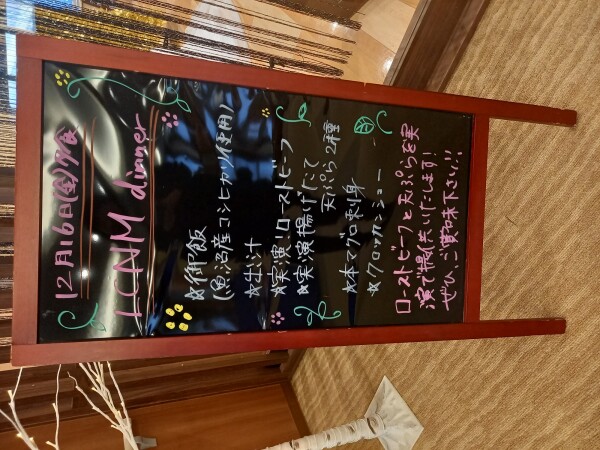 12月16日(金)夕食
LCNM dinner
☆御飯
(魚沼産コシヒカリ使用)
☆出汁
☆実演!ローストビーフ
☆実演揚げたて
天ぷら2種
☆本マグロ刺身
☆クロッカンシュー
ローストビーフと天ぷらを実
演で提供いたします!
ぜひ、ご賞味下さい!!